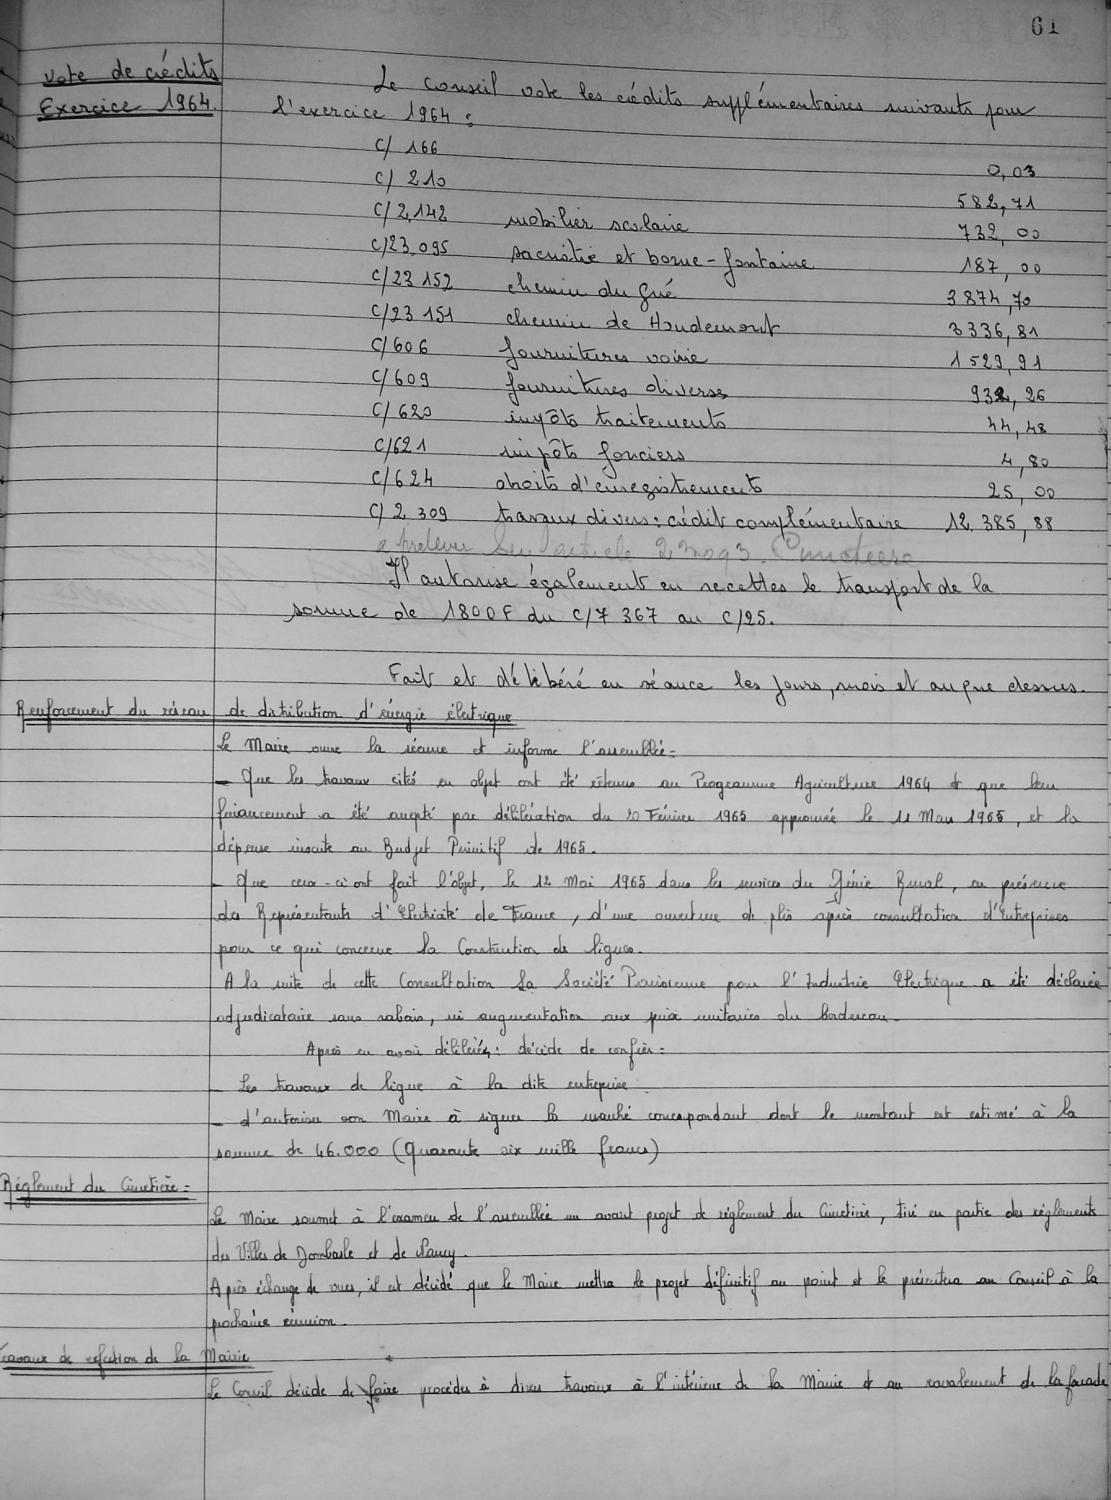 61
Vote de crédits
Exercice 1964.
Le Conseil vote les crédits supplémentaires suivants pour
l'exercice 1964 :
C/ 166 0,03
C/ 210 582,71
C/ 2,142 mobilier scolaire 732,00
C/23,095 sacristie et borne-fontaine 187,00
C/23 152 chemin du gué 3874,70
C/23 151 chemin de Houdemont 3336,81
C/606 fournitures voirie 1529,91
C/609 fournitures diverses 932,26
C/620 impôts traitements 44,48
C/621 impôts fonciers 4,80
C/624 droits d'enregistrements 25,00
C/ 2 309 travaux divers : crédit complémentaire 12.385,88
a prelever sur article 23093. Cimetière
Il autorise également en recettes le transport de la
somme de 1800F du C/7 367 au C/25.
Fait et délibéré en séance les jours, mois et an que dessus.
Renforcement du réseau de distribution d'énergie électrique
Le Maire ouvre la séance et informe l'assemblée :
- Que les travaux cités en objet ont été retenus au Programme Agriculture 1964 et que leur
financement a été accepté par délibération du 20 Février 1965 approuvée le 11 Mars 1965, et la
dépense inscrite au Budget Primitif de 1965.
- Que ceux-ci ont fait l'objet, le 12 Mai 1965 dans les services du Génie Rural, en présence
des Représentants d'Electricité de France, d'une ouverture de plis après consultation d'Entreprises
pour ce qui concerne la Construction de lignes.
A la suite de cette Consultation la Société Parisienne pour l'Industrie Electrique a été déclarée
adjudicataire sans rabais, ni augmentation aux prix unitaires du bordereau.
Après en avoir délibéré, : décide de confier :
- Les travaux de ligne à la dite entreprise
- d'autoriser son Maire à signer le marché correspondant dont le montant est estimé à la
somme de 46.000 (Quarante six mille francs)
Réglement du Cimetière :
Le Maire soumet à l'examen de l'assemblée un avant projet de réglement du Cimetière, tiré en partie des réglements
des Villes de Dombasle et de Nancy.
Après échange de vues, il est décidé que le Maire mettra le projet définitif au point et le présentera au Conseil à la
prochaine réunion.
Travaux de réfection de la Mairie
Le Conseil décide de faire procéder à divers travaux à l'intérieur de la Mairie et au ravalement de la facade